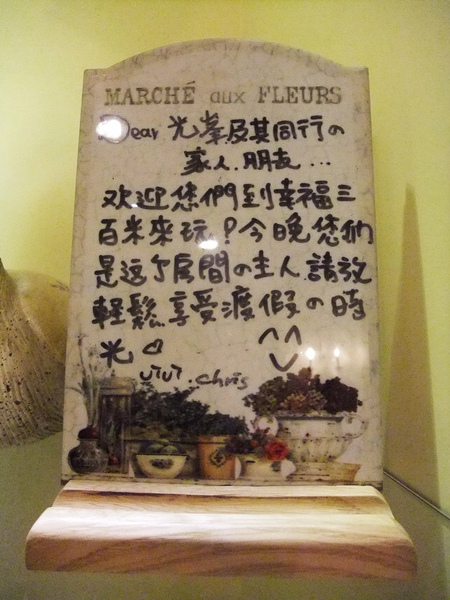 MARCHÉ aux FLEURS
Dear 光峯及其同行の
家人.朋友...
欢迎您們到幸福三
百米來玩?今晚您們
是这了房間の主人.請放
輕鬆享受渡假の時
光♡
ViVi.chris